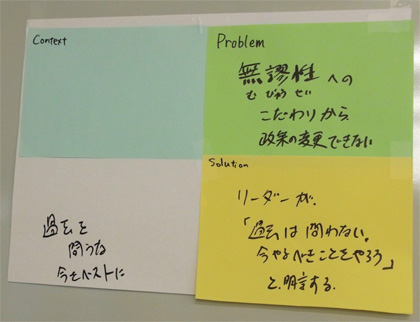 Context
Problem
無謬性への
むびゅうせい
こだわりから
政策の変更できない
過去を
問うな
今をベストに
Solution
リーダーが、
「過去は問わない。
今やるべきことをやろう」
と、明言する。